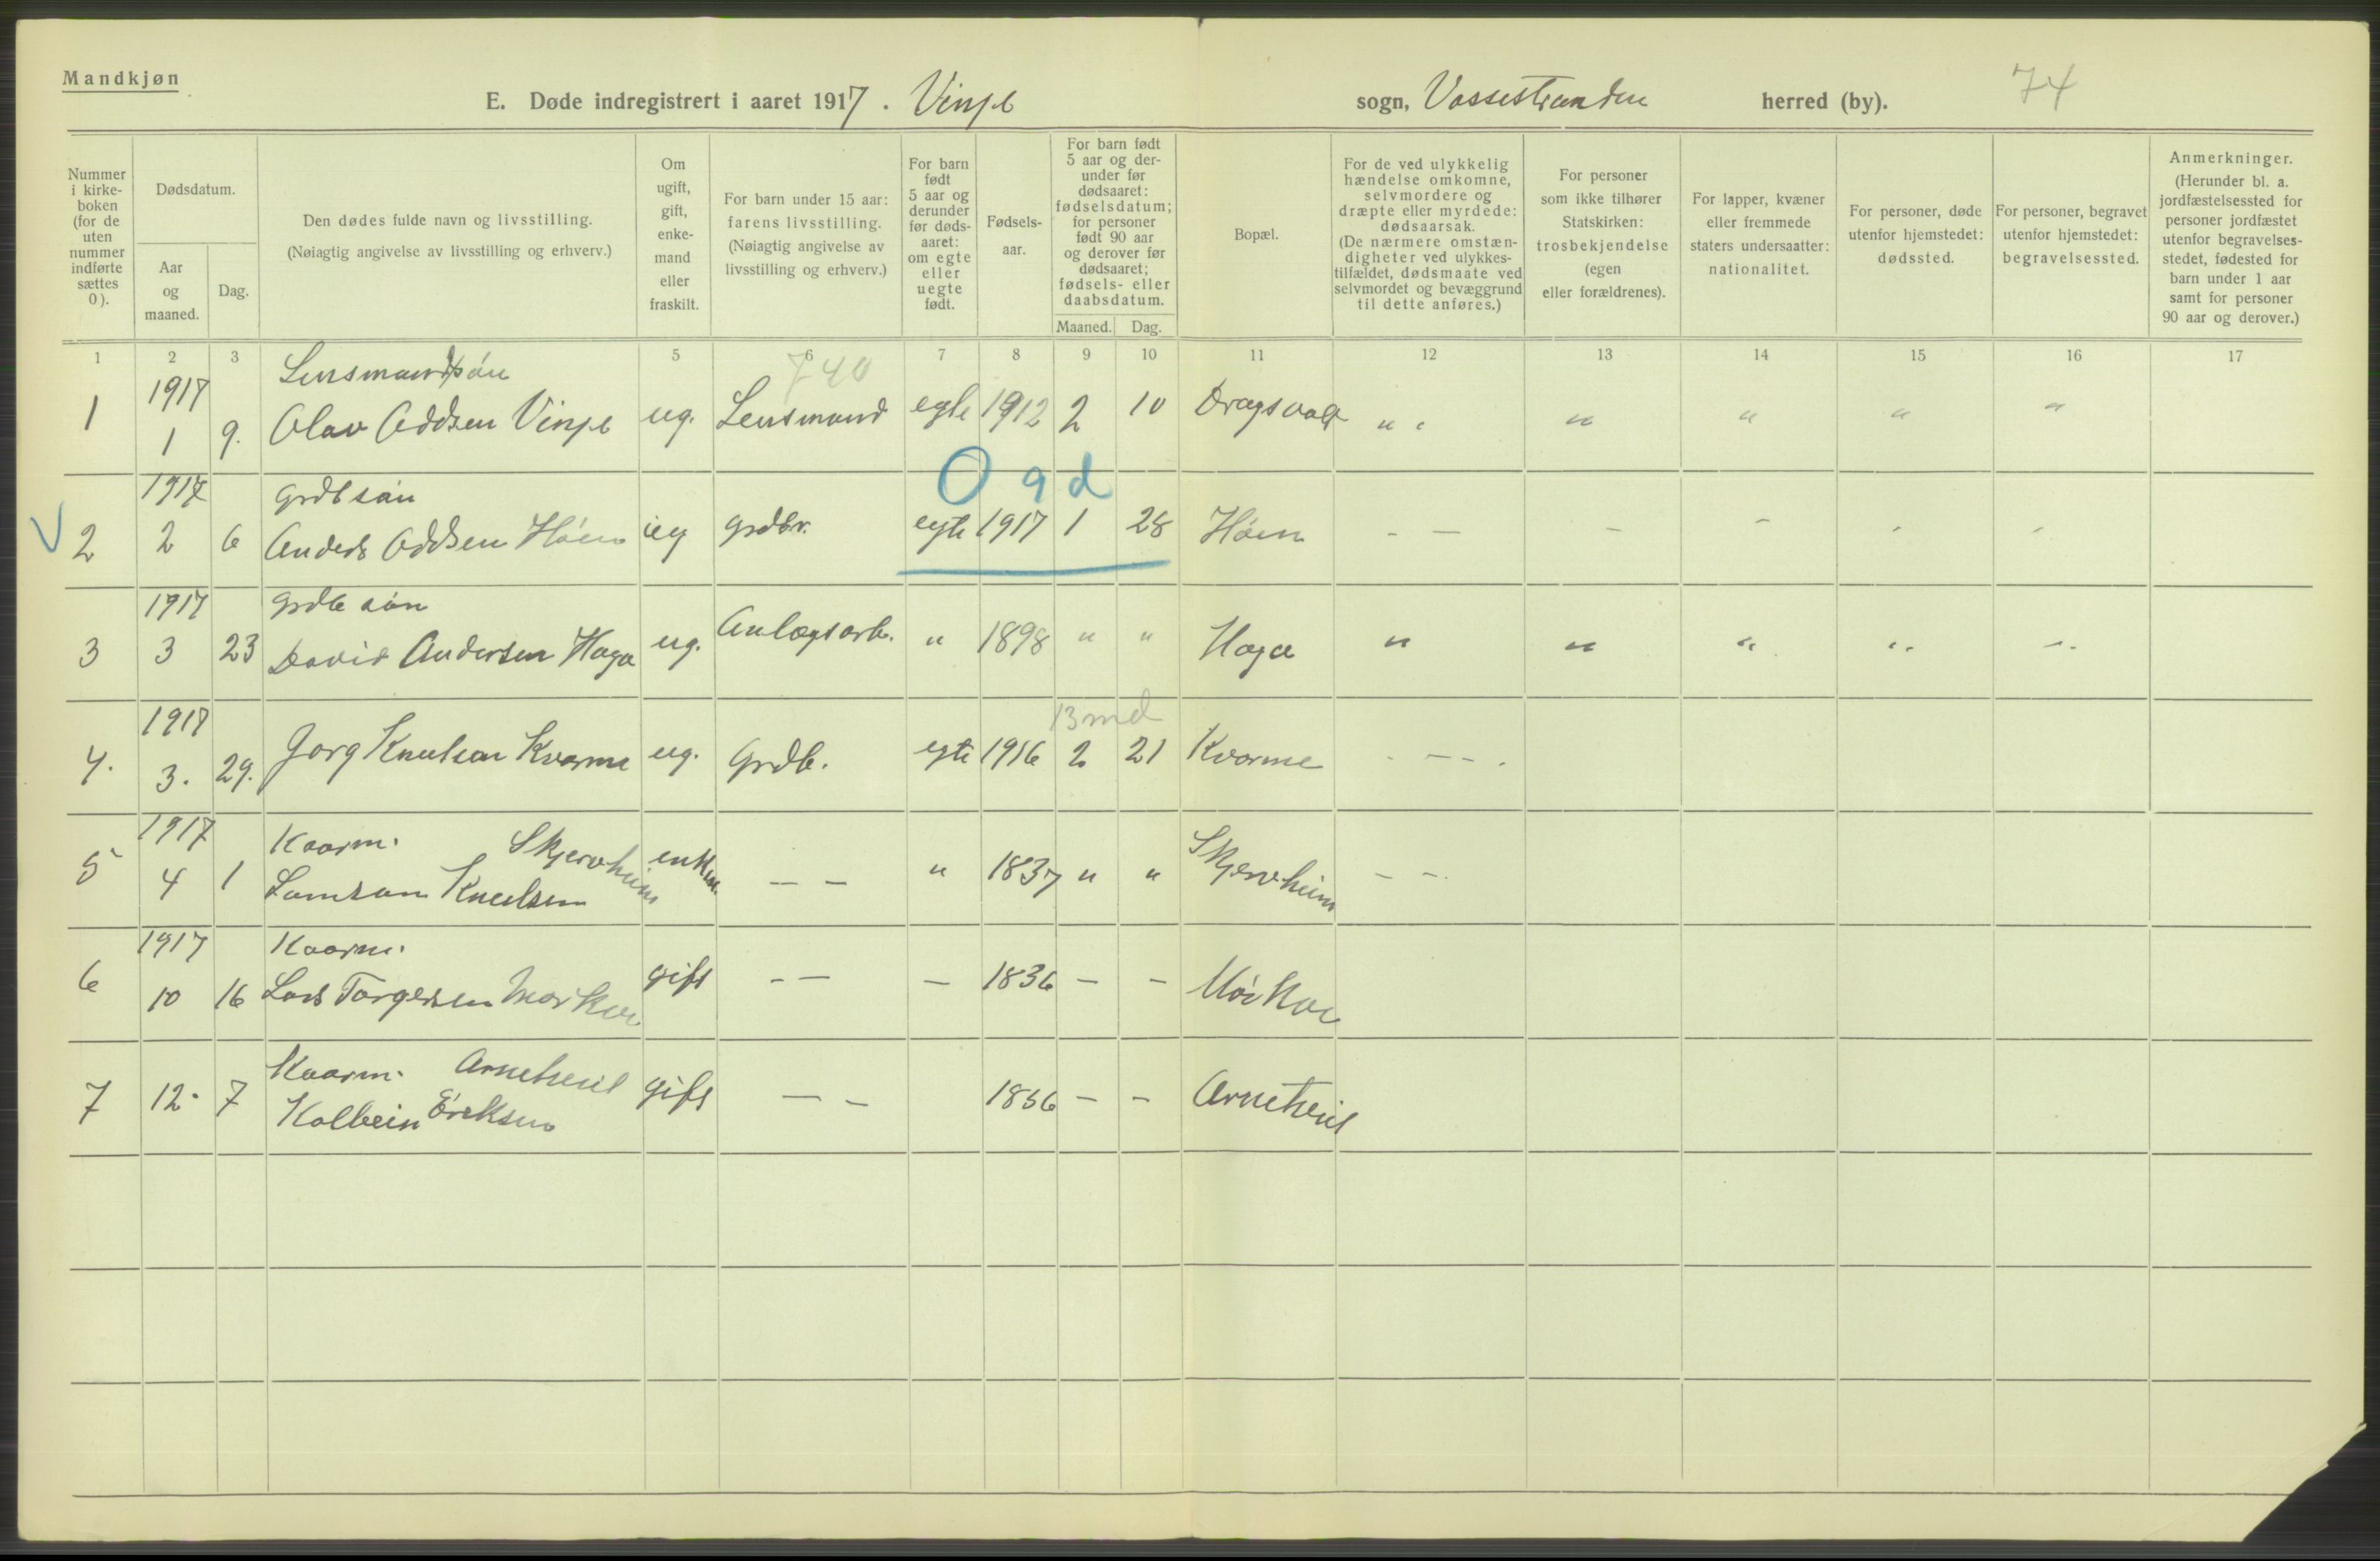 Mandkjøn
E. Døde indregistrert i aaret 1917. Vinje sogn, Vossestranden herred (by). 74
Nummer i kirke-boken (for de uten nummer indførte sættes 0).
Dødsdatum.
Aar og maaned.
Dag.
Den dødes fulde navn og livsstilling.
(Nøiagtig angivelse av livsstilling og erhverv.)
Om ugift, gift, enke-mand eller fraskilt.
For barn under 15 aar: farens livsstilling.
(Nøiagtig angivelse av livsstilling og erhverv.)
For barn født 5 aar og derunder før døds-aaret: om egte eller uegte født.
Fødsels-aar.
For barn født 5 aar og der-under før dødsaaret: fødselsdatum; for personer født 90 aar og derover før dødsaaret; fødsels- eller daabsdatum.
Maaned. Dag.
Bopæl.
For de ved ulykkelig hændelse omkomne, selvmordere og dræpte eller myrdede: dødsaarsak.
(De nærmere omstæn-digheter ved ulykkes-tilfældet, dødsmaate ved selvmordet og bevæggrund til dette anføres.)
For personer som ikke tilhører Statskirken: trosbekjendelse (egen eller forældrenes).
For lapper, kvæner eller fremmede staters undersaatter: nationalitet.
For personer, døde utenfor hjemstedet: dødssted.
For personer, begravet utenfor hjemstedet: begravelsessted.
Anmerkninger.
(Herunder bl. a. jordfæstelsessted for personer jordfæstet utenfor begravelses-stedet, fødested for barn under 1 aar samt for personer 90 aar og derover.)
1 2 3 5 6 7 8 9 10 11 12 13 14 15 16 17
1917 Lensmandssön 740
1 1 9. Olav Oddsen Vinje ug. Lensmand egte 1912 2 10 " " " " " "
0 9 d
1917 grdbsön
V 2 2 6 Anders Oddsen Höen ug grdbr. egte 1917 1 28 Höen - — – – - -
1917 grdb sön
3 3 23 David Andersen Haga ug. Anlægsarb. " 1898 " " Haga " " " " "
1917 13 md
4. 3. 29. Knutson Kvarme ug. Grdb. egte 1916 2 21 Kvarme - — - -
1917 Kaarm. Skjervheim
5 4 1 Lamson Knutsen enkem. — — " 1837 " " Skjervheim – –
1917 Kaarm.
6 10 16 Lars Torgersen Mörkve gift - — — 1836 – – Mörkve
Kaarm. Arnetveit
7 12. 7 Kolbein Eriksen gift — – 1836 – – Arnetveit